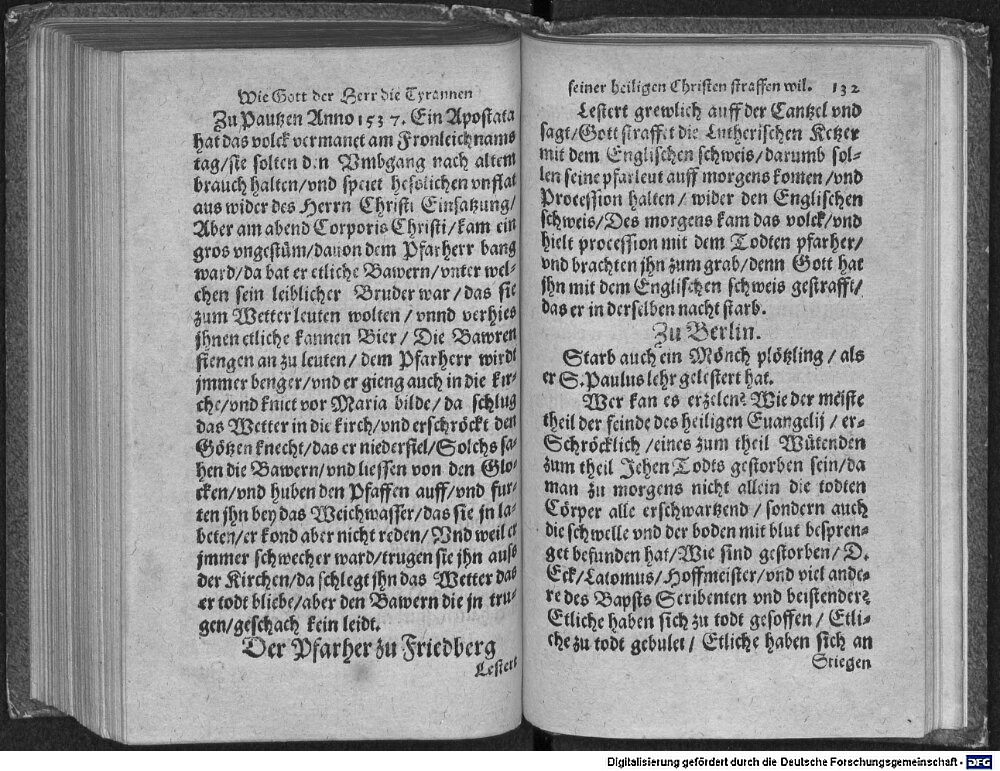 Wie Gott der Herr die Tyrannen
Zu Pautzen Anno 1537. Ein Apostata
hat das volck vermanet am Fronleichnams
tag/sie solten den Vmbgang nach altem
brauch halten/vnd speiet heslichen vnflat
aus wider des Herrn Christi Einsatzung/
Aber am abend Corporis Christi/kam ein
gros vngestüm/dauon dem Pfarherr bang
ward/da bat er etliche Bawern/vnter wel-
chen sein leiblicher Bruder war/das sie
zum Wetter leuten wolten/vnnd verhies
jhnen etliche kannen Bier/Die Bawren
fiengen an zu leuten/dem Pfarherr wirdt
jmmer benger/vnd er gieng auch in die kir-
che/vnd kniet vor Maria bilde/da schlug
das Wetter in die kirch/vnd erschröckt den
Götzen knecht/das er niderfiel/Solchs sa-
hen die Bawern/vnd liessen von den Glo-
cken/vnd huben den Pfaffen auff/vnd fur-
ten jhn bey das Weichwasser/das sie jn la-
beten/er kond aber nicht reden/Vnd weil er
jmmer schwecher ward/trugen sie jhn auss
der Kirchen/da schlegt jhn das Wetter das
er todt bliebe/aber den Bawern die jn tru-
gen/geschach kein leidt.
Der Pfarher zu Friedberg
Lestert
seiner heiligen Christen straffen wil. 132
Lestert grewlich auff der Cantzel vnd
sagt/Gott straffet die Lutherischen Ketzer
mit dem Englischen schweis/darumb sol-
len seine pfarleut auff morgens komen/vnd
Procession halten/wider den Englischen
schweis/Des morgens kam das volck/vnd
hielt procession mit dem Todten pfarher/
vnd brachten jhn zum grab/denn Gott hat
jhn mit dem Englischen schweis gestrafft/
das er in derselben nacht starb.
Zu Berlin.
Starb auch ein Mönch plötzling/als
er S. Paulus lehr gelestert hat.
Wer kan es erzelen? Wie der meiste
theil der feinde des heiligen Euangelij/er-
Schröcklich/eines zum theil Wütenden
zum theil Jehen Todts gestorben sein/da
man zu morgens nicht allein die todten
Cörper alle erschwartzend/sondern auch
die schwelle vnd der boden mit blut bespren-
get befunden hat/Wie sind gestorben/D.
Eck/Latomus/Hoffmeister/vnd viel ande-
re des Bapsts Scribenten vnd beistender?
Etliche haben sich zu todt gesoffen/Etli-
che zu todt gebulet/Etliche haben sich an
Stiegen
Digitalisierung gefördert durch die Deutsche Forschungsgemeinschaft - DFG